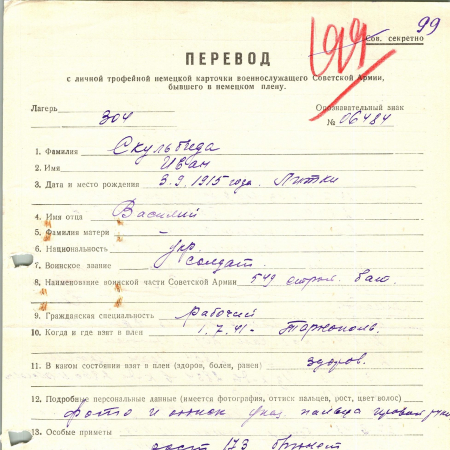 99
Сов. секретно
ПЕРЕВОД
с личной трофейной немецкой карточки военнослужащего Советской Армии,
бывшего в немецком плену.
Лагерь 304
Опознавательный знак
№ 06484
1. Фамилия Скульбида
2. Имя Иван
3. Дата и место рождения 3.9.1915 года. Лятки
4. Имя отца Василий
5. Фамилия матери –
6. Национальность укр.
7. Воинское звание солдат.
8. Наименование воинской части Советской Армии 549 строй. бат.
9. Гражданская специальность рабочий
10. Когда и где взят в плен 1.7.41 - Тарнополь.
11. В каком состоянии взят в плен (здоров, болен, ранен) здоров.
12. Подробные персональные данные (имеется фотография, оттиск пальцев, рост, цвет волос)
фото и оттиск указ. пальца правой руки
13. Особые приметы
рост 173 брюнет